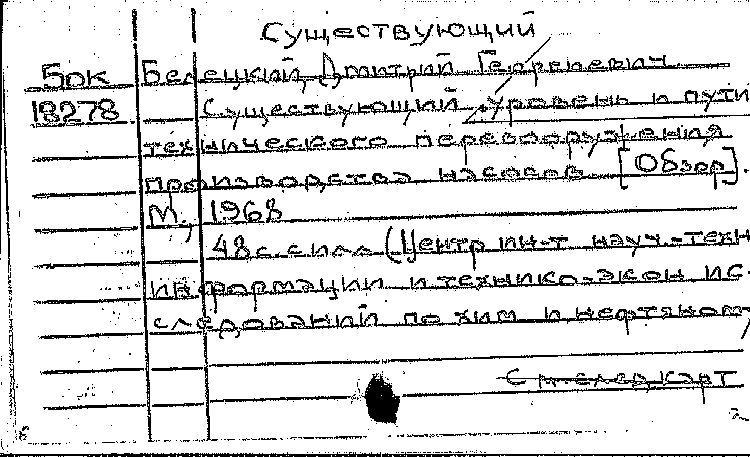 Существующий
Бок Белецкий, Дмитрий Георгиевич
18278 Существующий уровень и пути
технического перевооружения
производства насосов. [Обзор].
М., 1968
48с. с илл (Центр ин-т науч.-техн
информации и технико-экон ис-
следований по хим и нефтяному
См. след. карт